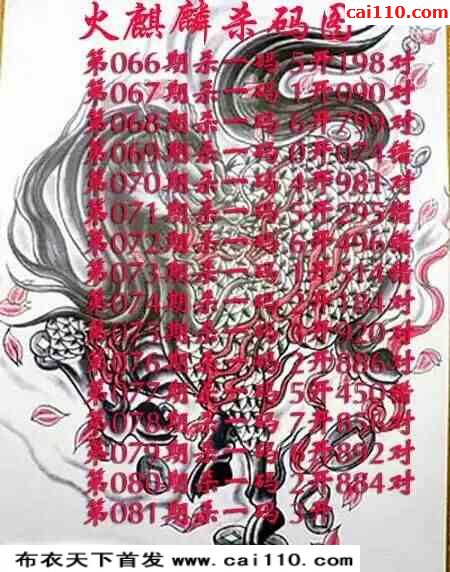 cai110.com
火麒麟杀码图
第066期杀一码 5开198对
第067期杀一码 1开090对
第068期杀一码 6开799对
第069期杀一码 0开024错
第070期杀一码 4开981对
第071期杀一码 5开295错
第072期杀一码 6开496错
第073期杀一码 1开514错
第074期杀一码 开184对
第075期杀一码 开920对
第076期杀一码 2开886对
第077期杀一码 5开450错
第078期杀一码 7开 对
第079期杀一码 开892对
第080期杀一码 2开884对
第081期杀一码 3开
布衣天下首发 www.cai110.com